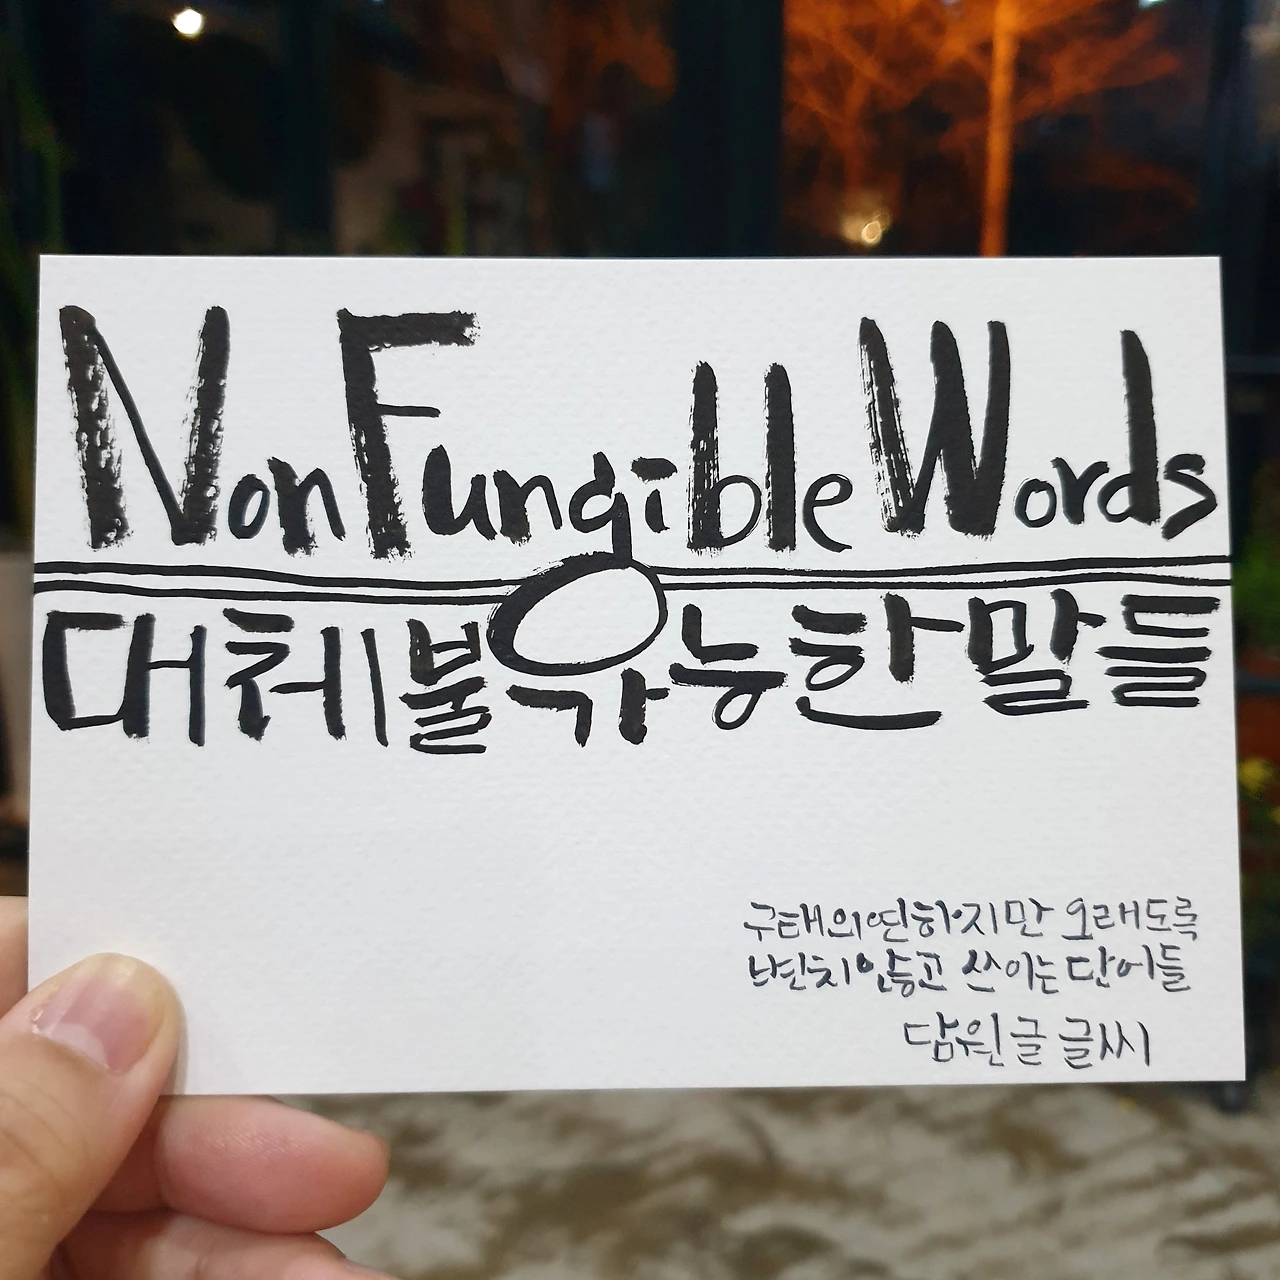 Non Fungible Words
대체불가능한 말들
구태의연하지만 오래도록
변치않고 쓰이는 단어들
담원글 글씨